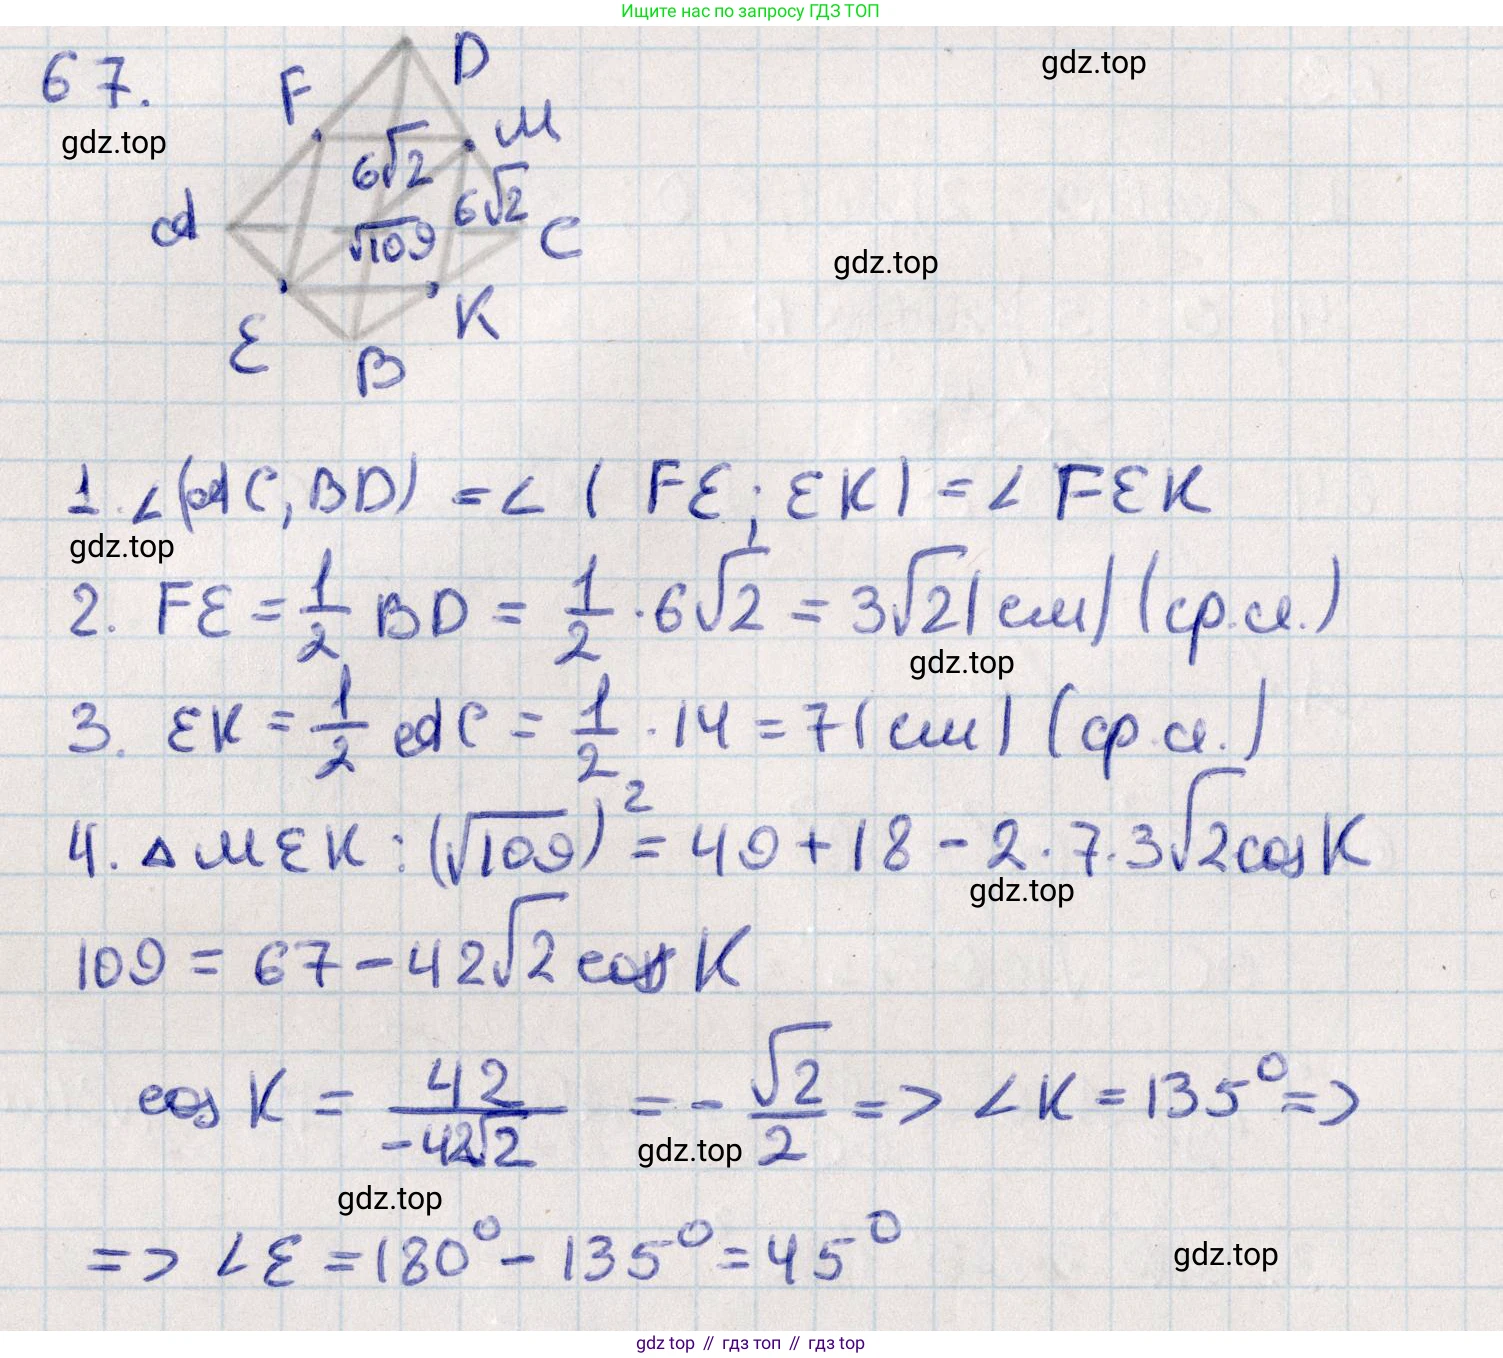 Ищите нас по запросу ГДЗ ТОП
67.
gdz.top
F
D
gdz.top
M
6√2
6√2
A
√109
C
gdz.top
E
K
B
1. ∠(AC, BD) = ∠(FE; EK) = ∠ FEK
gdz.top
2. FE = 1/2 BD = 1/2 · 6√2 = 3√2 (см) (ср.л.)
gdz.top
3. EK = 1/2 AC = 1/2 · 14 = 7 (см) (ср.л.)
4. △MEK: (√109)² = 49 + 18 - 2 · 7 · 3√2 cos K
gdz.top
109 = 67 - 42√2 cos K
cos K = 42/-42√2 = - √2/2 => ∠K = 135° =>
gdz.top
gdz.top
=> ∠E = 180° - 135° = 45°
gdz.top
gdz top // гдз топ // гдз top